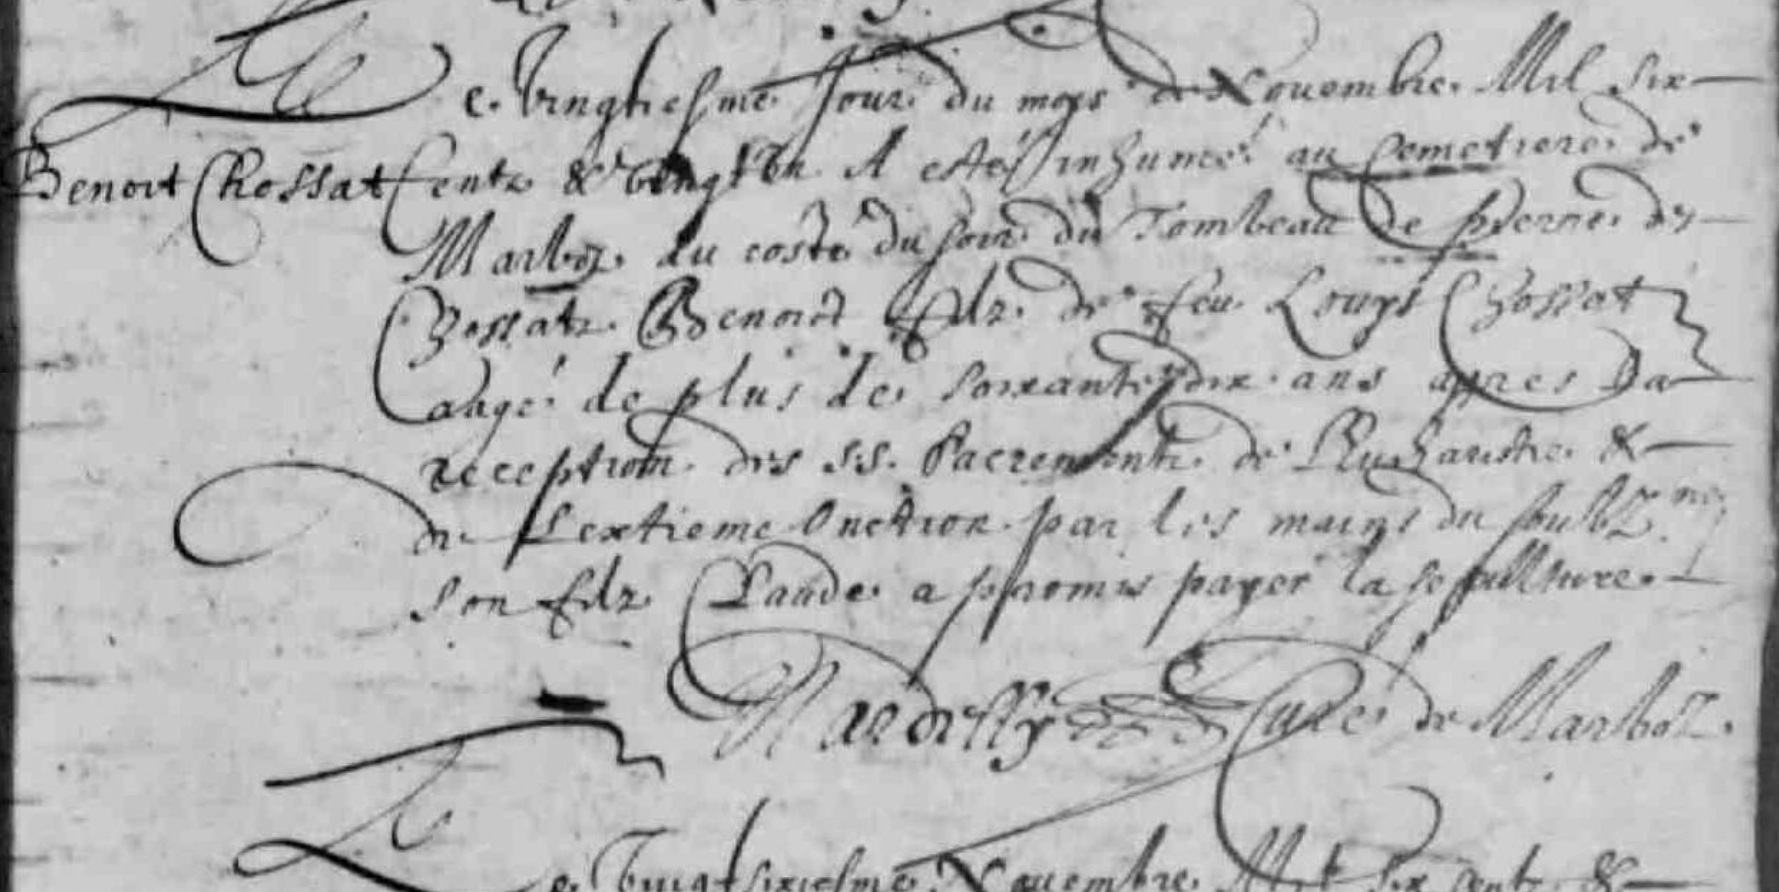 Le vingtiesme Jour du moys de Novembre Mil six
Benoit Chossat
Centz & vingt Un A esté inhumé au Cemetiere de
Marboz du costé du soir du Tombeau de pierre des
Chossatz Benoict filz de feu Louys Chossat
aagé de plus de soixante dix ans apres La
reception des SS. Sacrements de L'Eucharistie &
de L'extreme Onction par les mains du soubz.né
son filz Claude a promis payer la sepulture.
Mardelly Curé de Marboz.
Le Vingt sixiesme Novembre Mil Six Centz &